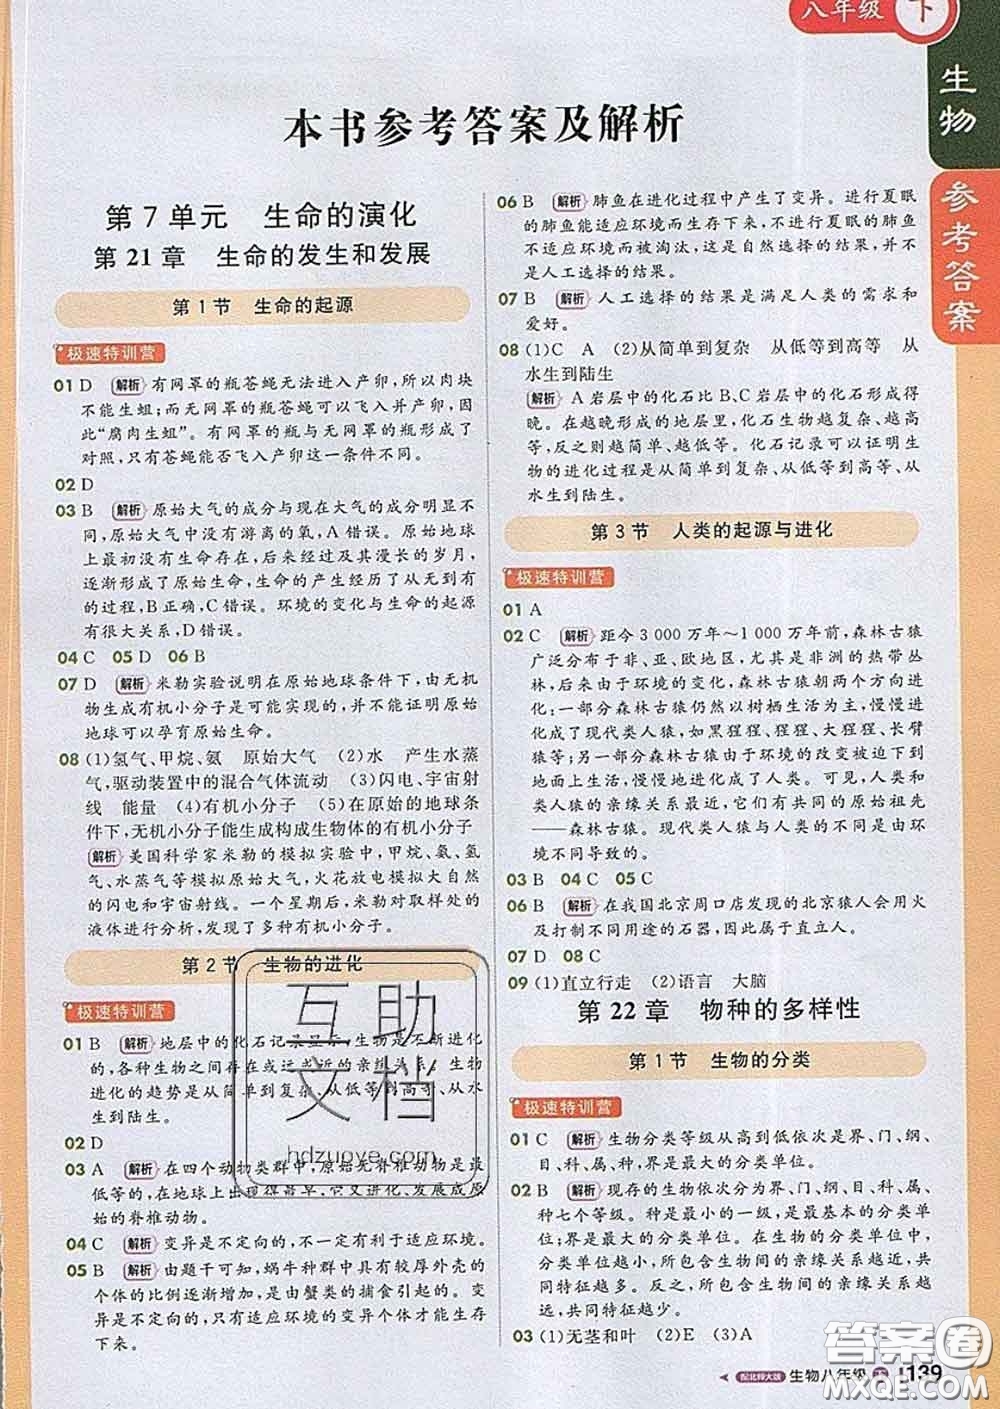 八年级 下
生物
参考答案
本书参考答案及解析
第7单元 生命的演化
第21章 生命的发生和发展
第1节 生命的起源
极速特训营
01 D 解析 有网罩的瓶苍蝇无法进入产卵,所以肉块
不能生蛆;而无网罩的瓶苍蝇可以飞入并产卵,因
此“腐肉生蛆”。有网罩的瓶与无网罩的瓶形成了
对照,只有苍蝇能否飞入产卵这一条件不同。
02 D
03 B 解析 原始大气的成分与现在大气的成分明显不
同,原始大气中没有游离的氧,A错误。原始地球
上最初没有生命存在,后来经过及其漫长的岁月,
逐渐形成了原始生命,生命的产生经历了从无到有
的过程,B正确,C错误。环境的变化与生命的起源
有很大关系,D错误。
04 C 05 D 06 B
07 D 解析 米勒实验说明在原始地球条件下,由无机
物生成有机小分子是可能实现的,并不能证明原始
地球可以孕育原始生命。
08 (1)氢气、甲烷、氨 原始大气 (2)水 产生水蒸
气,驱动装置中的混合气体流动 (3)闪电、宇宙射
线 能量 (4)有机小分子 (5)在原始的地球条
件下,无机小分子能生成构成生物体的有机小分子
解析 美国科学家米勒的模拟实验中,甲烷、氨、氢
气、水蒸气等模拟原始大气,火花放电模拟大自然
的闪电和宇宙射线。一个星期后,米勒对取样处的
液体进行分析,发现了多种有机小分子。
第2节 生物的进化
极速特训营
01 B 解析 地层中的化石记录显示,生物是不断进化
的,各种生物之间存在或远或近的亲缘关系。生物
进化的趋势是从简单到复杂、从低等到高等、从水
生到陆生。
02 D
03 A 解析 在四个动物类群中,原始无脊椎动物是最
低等的,在地球上出现得最早,它又进化、发展成原
始的脊椎动物。
04 C 解析 变异是不定向的,不一定有利于适应环境。
05 B 解析 由题干可知,蜗牛种群中具有较厚外壳的
个体的比例逐渐增加,是由蟹类的捕食引起的。变
异是不定向的,适应环境的变异个体才能生存
下来。
06 B 解析 肺鱼在进化过程中产生了变异。进行夏眠
的肺鱼能适应环境而生存下来,不进行夏眠的肺鱼
不适应环境而被淘汰,这是自然选择的结果,并不
是人工选择的结果。
07 B 解析 人工选择的结果是满足人类的需求和
爱好。
08 (1)C A (2)从简单到复杂 从低等到高等 从
水生到陆生
解析 A岩层中的化石比B、C岩层中的化石形成得
晚。在越晚形成的地层里,化石生物越复杂、越高
等,反之则越简单、越低等。化石记录可以证明生
物的进化过程是从简单到复杂、从低等到高等、从
水生到陆生。
第3节 人类的起源与进化
极速特训营
01 A
02 C 解析 距今3 000万年~1 000万年前,森林古猿
广泛分布于非、亚、欧地区,尤其是非洲的热带丛
林,后由于环境的变化,森林古猿朝两个方向进
化:一部分森林古猿仍然以树栖生活为主,慢慢进
化成了现代类人猿,如黑猩猩、猩猩、大猩猩、长臂
猿等;另一部分森林古猿由于环境的改变而被迫下
到地面上生活,慢慢地进化成了人类。可见,人类和
类人猿的亲缘关系最近,它们有共同的原始祖先
——森林古猿。现代类人猿与人类的不同是由环
境不同导致的。
03 B 04 C 05 C
06 B 解析 在我国北京周口店发现的北京猿人会用火
及打制不同用途的石器,因此属于直立人。
07 D 08 C
09 (1)直立行走 (2)语言 大脑
第22章 物种的多样性
第1节 生物的分类
极速特训营
01 C 解析 生物分类等级从高到低依次是界、门、纲、
目、科、属、种,界是最大的分类单位。
02 B 解析 现存的生物依次分为界、门、纲、目、科、属、
种七个等级。种是最小的一级,是最基本的分类单
位;界是最大的分类单位。分类单位越小,所包含生
物的共同特征越多,所包含生物间的亲缘关系越近,
共同特征越多。反之,所包含生物的亲缘关系越
远,共同特征越少。
03 (1)无茎和叶 (2)E (3)A
配北师大版 生物八年级 下 139
互助
文档
hdzuoye.com
答案圈
MXQE.COM